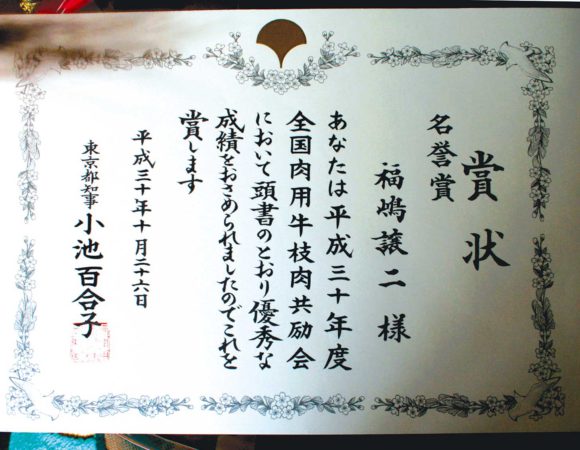 賞状
名誉賞
福嶋譲二様
あなたは平成三十年度
全国肉用牛枝肉共励会
において頭書のとおり優秀な
成績をおさめられましたのでこれを
賞します
平成三十年十月二十六日
東京都知事 小池百合子